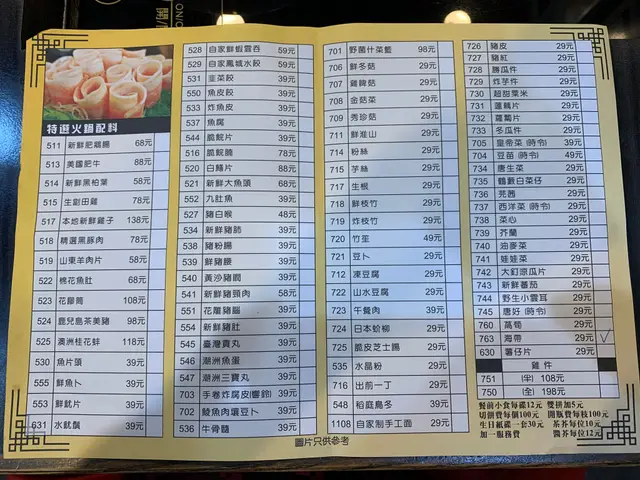 特選火鍋配料
511 新鮮肥鵝腸 68元
513 美國肥牛 88元
514 新鮮黑柏葉 58元
515 生劏田雞 78元
517 本地新鮮雞子 138元
518 精選黑豚肉 78元
519 山東羊肉片 58元
522 棉花魚肚 68元
523 花膠筒 108元
524 鹿兒島茶美豬 98元
525 澳洲桂花蚌 118元
530 魚片頭 39元
555 鮮魚卜 39元
553 鮮魷片 39元
631 水魷鬚 39元
528 自家鮮蝦雲吞 59元
529 自家鳳城水餃 59元
531 韭菜餃 39元
550 魚皮餃 39元
533 炸魚皮 39元
537 魚腐 39元
544 脆皖片 39元
516 脆皖腩 78元
520 白鱔片 88元
521 新鮮大魚頭 68元
552 九肚魚 39元
527 豬白喉 48元
534 新鮮豬肺 39元
538 豬粉腸 39元
539 鮮豬腰 39元
540 黃沙豬膶 39元
541 新鮮豬頸肉 58元
551 花雕豬腦 39元
554 新鮮豬肚 39元
545 臺灣貢丸 39元
546 潮洲魚蛋 39元
547 潮洲三寶丸 39元
703 手卷炸腐皮(響鈴) 39元
702 鯪魚肉讓豆卜 39元
536 牛骨髓 39元
701 野菌什菜籃 98元
706 鮮冬菇 29元
707 雞脾菇 29元
708 金菇菜 29元
709 秀珍菇 29元
711 鮮淮山 29元
714 粉絲 29元
715 芋絲 29元
717 生根 29元
718 鮮枝竹 29元
719 炸枝竹 29元
720 竹笙 49元
721 豆卜 29元
712 凍豆腐 29元
722 山水豆腐 29元
723 午餐肉 39元
724 日本蛤柳 29元
725 脆皮芝士腸 29元
535 水晶粉 29元
716 出前一丁 29元
548 稻庭烏冬 39元
1108 自家制手工面 29元
726 豬皮 29元
727 豬紅 29元
728 勝瓜件 29元
729 炸芋件 29元
730 超甜粟米 29元
731 蓮藕片 29元
732 蘿蔔片 29元
733 冬瓜件 29元
705 皇帝菜 (時令) 39元
704 豆苗 (時令) 49元
734 唐生菜 29元
735 鶴藪白菜仔 29元
736 莧茜 29元
737 西洋菜 (時令) 29元
738 菜心 29元
739 芥蘭 29元
740 油麥菜 29元
741 娃娃菜 29元
742 大釘涼瓜片 29元
743 新鮮蕃茄 29元
744 野生小雲耳 29元
745 唐好 (時令) 29元
760 萵筍 29元
763 海帶 29元
630 薯仔片 29元
雞件
751 (半) 108元
750 (全) 198元
餐前小食每碟12元 雙拼加5元
切餅費每個100元 開瓶費每枝100元
生日紙碟一套30元 茶芥每位10元
加一服務費 醬芥每位12元
圖片只供參考